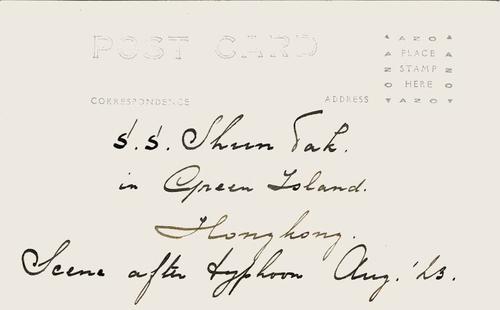 POST CARD
AZO
PLACE
STAMP
HERE
AZO
CORRESPONDENCE
ADDRESS
S.S. Shun Tak.
in Green Island.
Hongkong.
Scene after typhoon Aug. '23.